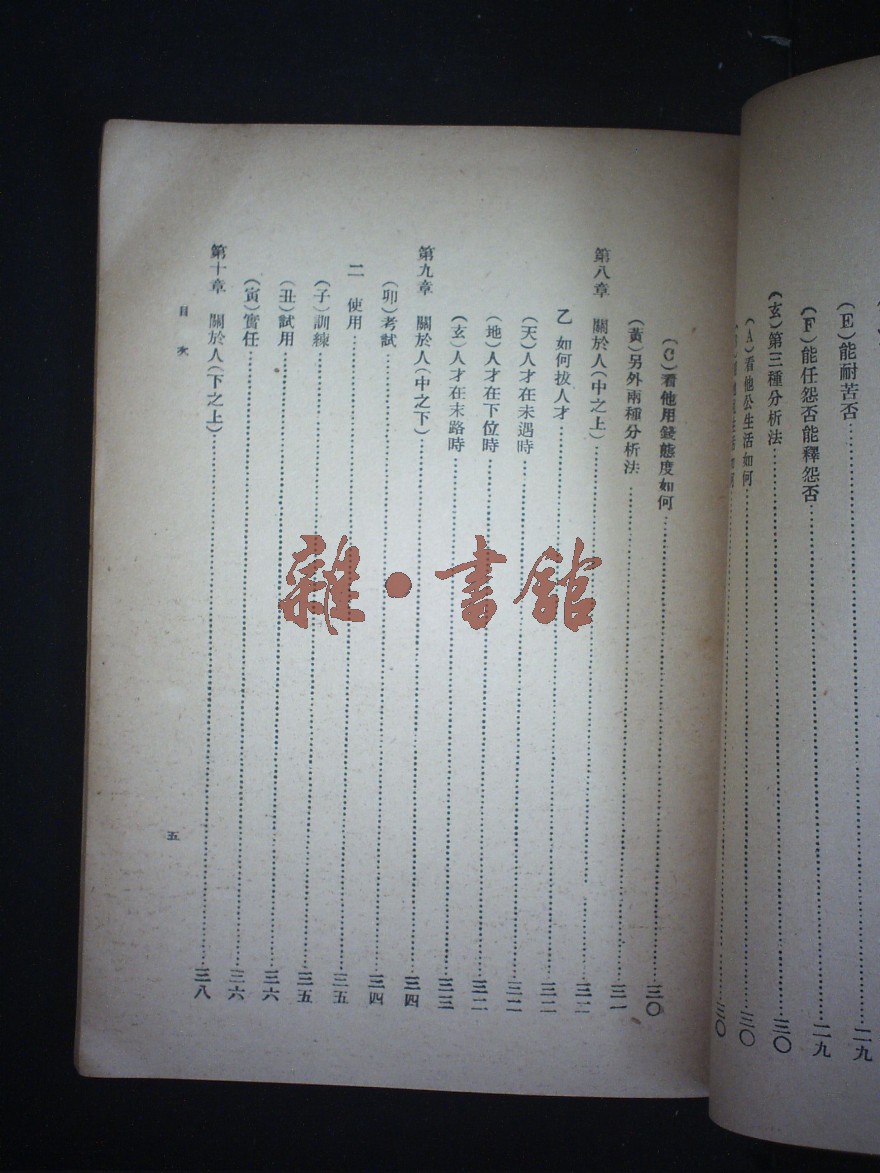 （E）能耐苦否……二九
（F）能任怨否能釋怨否……二九
（玄）第三種分析法……三〇
（A）看他公生活如何……三〇
生活如何……三〇
（C）看他用錢態度如何……三〇
（黃）另外兩種分析法……三一
第八章　關於人（中之上）……三二
乙　如何拔人才……三二
（天）人才在未遇時……三二
（地）人才在下位時……三二
（玄）人才在末路時……三三
第九章　關於人（中之下）……三四
（卯）考試……三四
二　使用……三五
（子）訓練……三五
（丑）試用……三六
（寅）實任……三六
第十章　關於人（下之上）……三八
目次
五
雜·書館